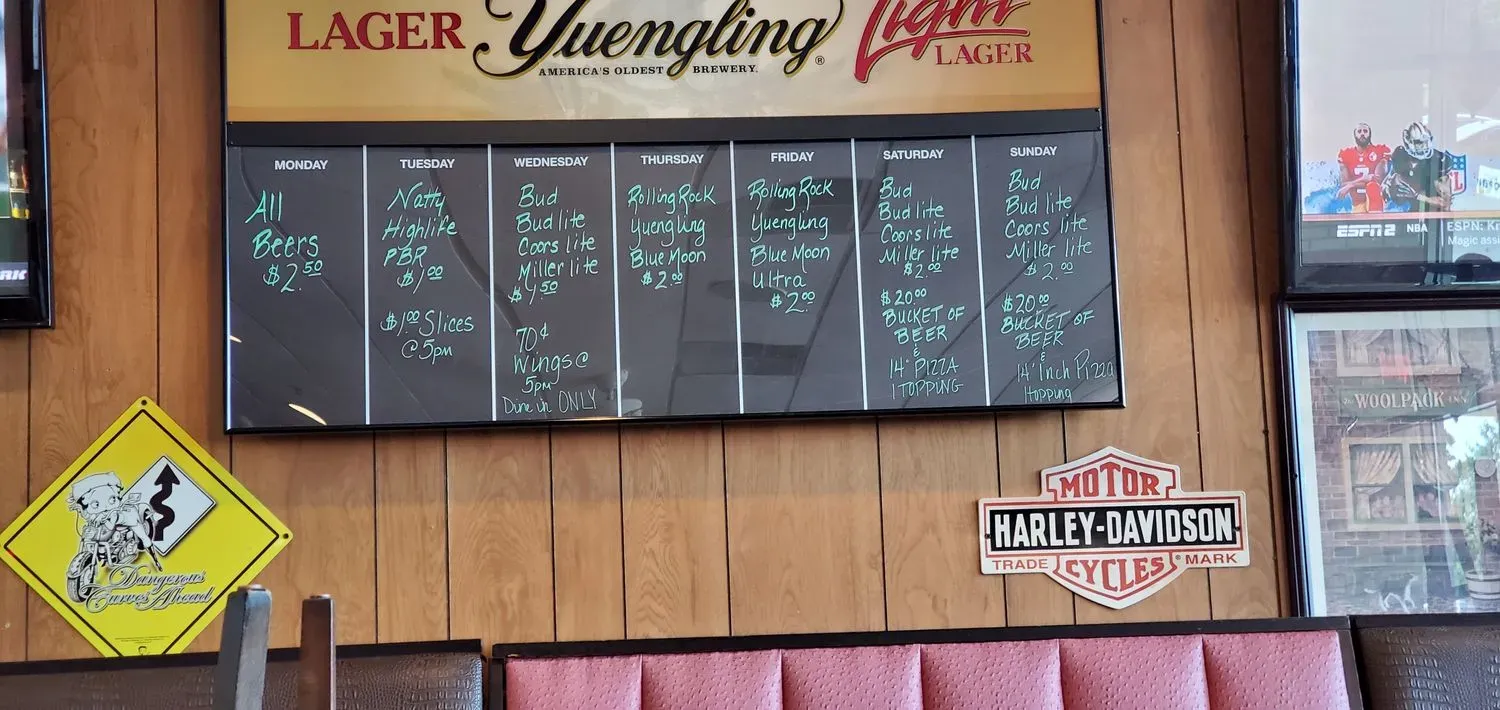 LAGER
Yuengling®
AMERICA'S OLDEST BREWERY.
Light
LAGER
MONDAY
All
Beers
$2.50
TUESDAY
Natty
Highlife
PBR
$1.00
$1.00 Slices
@ 5pm
WEDNESDAY
Bud
Bud lite
Coors lite
Miller lite
$1.50
70¢
Wings@
5pm
Dine in ONLY
THURSDAY
Rolling Rock
Yuengling
Blue Moon
$2.00
FRIDAY
Rolling Rock
Yuengling
Blue Moon
Ultra
$2.00
SATURDAY
Bud
Bud lite
Coors lite
Miller lite
$2.00
$20.00
BUCKET OF
BEER
&
14" PIZZA
1 TOPPING
SUNDAY
Bud
Bud lite
Coors lite
Miller lite
$2.00
$20.00
BUCKET OF
BEER
&
14" Inch Pizza
1 topping
RK
ESPN2 NBA ESPN:
Magic
NFL
7
WOOLPACK INN
Dangerous
Curves Ahead
MOTOR
HARLEY-DAVIDSON
TRADE MARK
CYCLES®